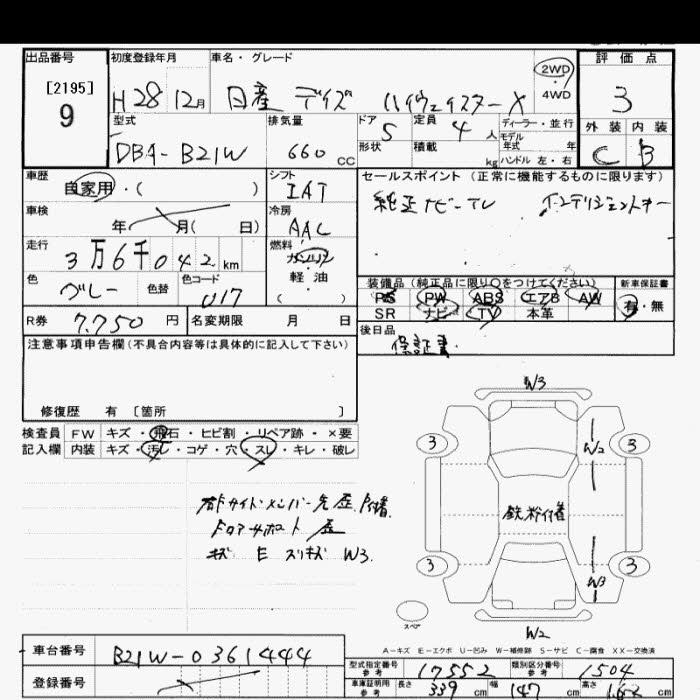 出品番号 初度登録年月 車名・グレード 2WD 評価点
[2195] H28 12月 日産 デイズ ハイウェイスターX 4WD 3
9
型式 排気量 ドア 5 定員 4人 ディーラー・並行 外装 内装
DBA-B21W 660CC 形状 積載 kg モデル年式 年 C B
ハンドル 左・右
車歴 シフト セールスポイント (正常に機能するものに限ります)
自家用・( ) IAT 純正ナビーTV インテリジェントキー
車検 冷房
年 月( 日) AAC
走行 燃料
3万6千042km ガソリン
色 色替 色コード 軽油 装備品(純正品に限り○をつけてください) 新車保証書
グレー U17 ( ) PS PW ABS エアB AW 有・無
SR ナビ TV 本革
R券 7.750円 名変期限 月 日 後日品
保証書.
注意事項申告欄(不具合内容等は具体的に記入して下さい)
修復歴 有 [箇所 ]
検査員 FW キズ・飛石・ヒビ割・リペア跡・×要
記入欄 内装 キズ・汚レ・コゲ・穴・スレ・キレ・破レ
サイドメンバー先歪
ドアサポート 歪
キズ E スリキズ W3.
W3
3 W2 3
鉄粉付着
3 W3 3
スペア
W2
A-キズ E-エクボ U-凹み W-補修跡 S-サビ C-腐食 XX-交換済
車台番号 B21W-0361444
型式指定番号 参考 17552 類別区分番号 参考 1504
登録番号
車庫証明用 参考 長さ 339cm 幅 147cm 高さ cm